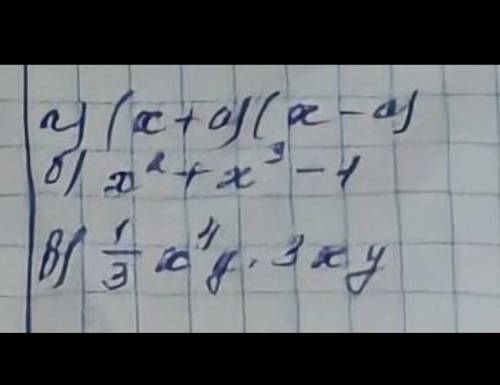 а) (x + a)(x - a)
б) x² + x³ - 1
в) 1/3 x⁴y · 3xy